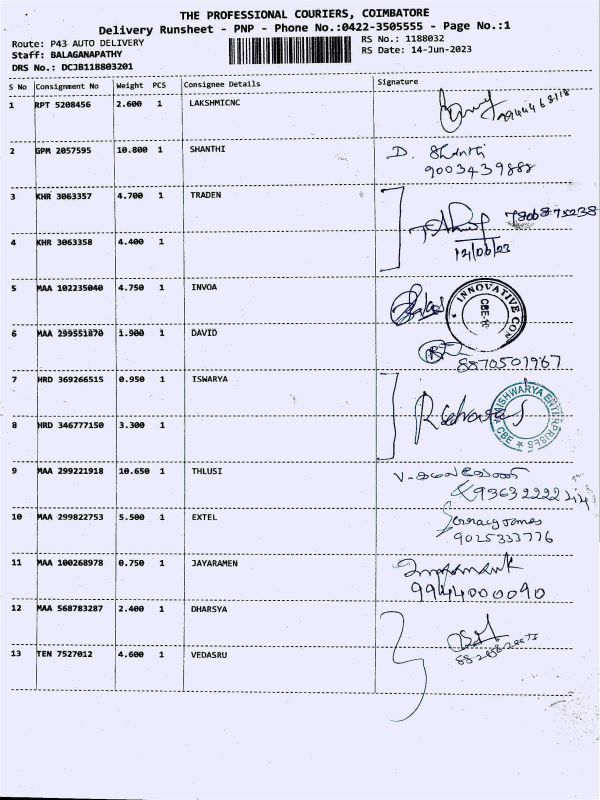 THE PROFESSIONAL COURIERS, COIMBATORE
Delivery Runsheet - PNP - Phone No.:0422-3505555 - Page No.:1
Route: P43 AUTO DELIVERY RS No.: 1188032
Staff: BALAGANAPATHY RS Date: 14-Jun-2023
DRS No.: DCJB118803201
S No Consignment No Weight PCS Consignee Details Signature
1 RPT 5208456 2.600 1 LAKSHMICNC
2 GPM 2057595 10.800 1 SHANTHI D. Shanthi
9003439888
3 KHR 3063357 4.700 1 TRADEN
4 KHR 3063358 4.400 1
5 MAA 102235040 4.750 1 INVOA INNOVATIVE CBE
6 MAA 299551870 1.900 1 DAVID
8870501967
7 HRD 369266515 0.950 1 ISWARYA AISHWARYA ENTERPRISES CBE
8 HRD 346777150 3.300 1
9 MAA 299221918 10.650 1 THLUSI
10 MAA 299822753 5.500 1 EXTEL
9025333776
11 MAA 100268978 0.750 1 JAYARAMEN
9944000090
12 MAA 568783287 2.400 1 DHARSYA
13 TEN 7527012 4.600 1 VEDASRU